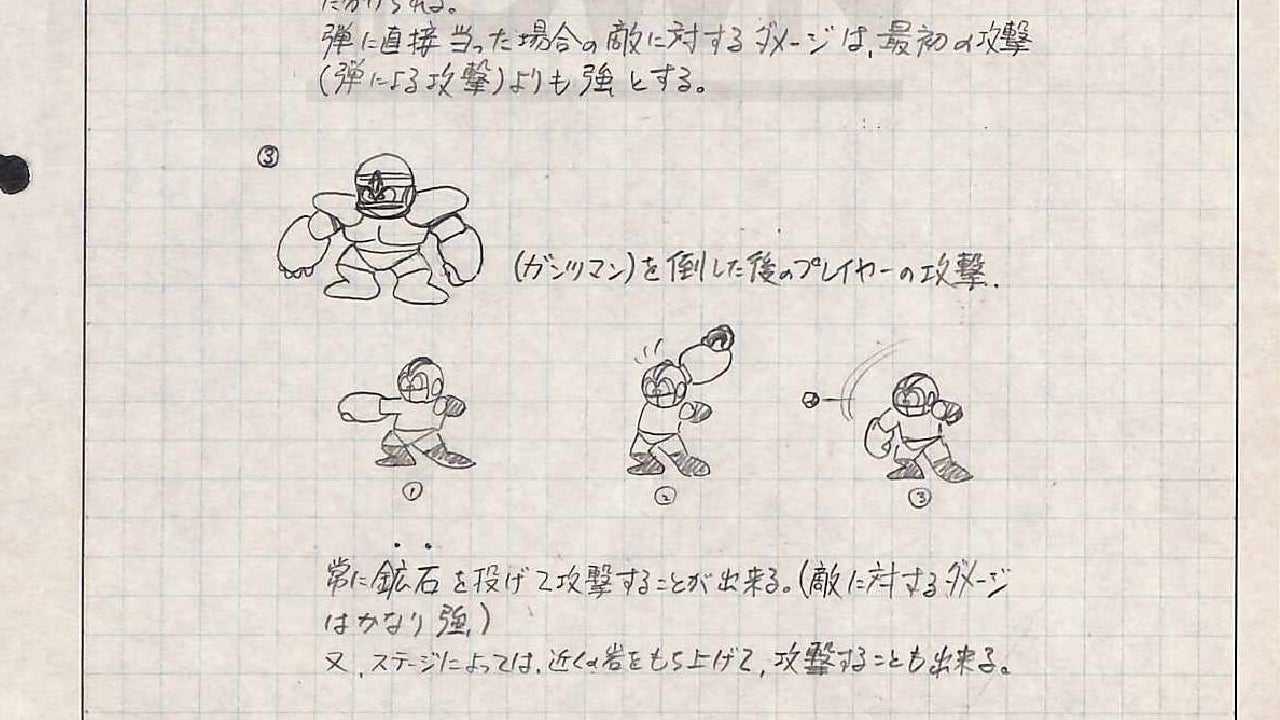 たかけられる。
弾に直接当った場合の敵に対するダメージは、最初の攻撃
(弾による攻撃)よりも強とする。
③
(ガッツマン)を倒した後のプレイヤーの攻撃.
① ② ③
常に鉱石を投げて攻撃することが出来る。(敵に対するダメージ
はかなり強。)
又、ステージによっては、近くの岩をもち上げて、攻撃することも出来る。